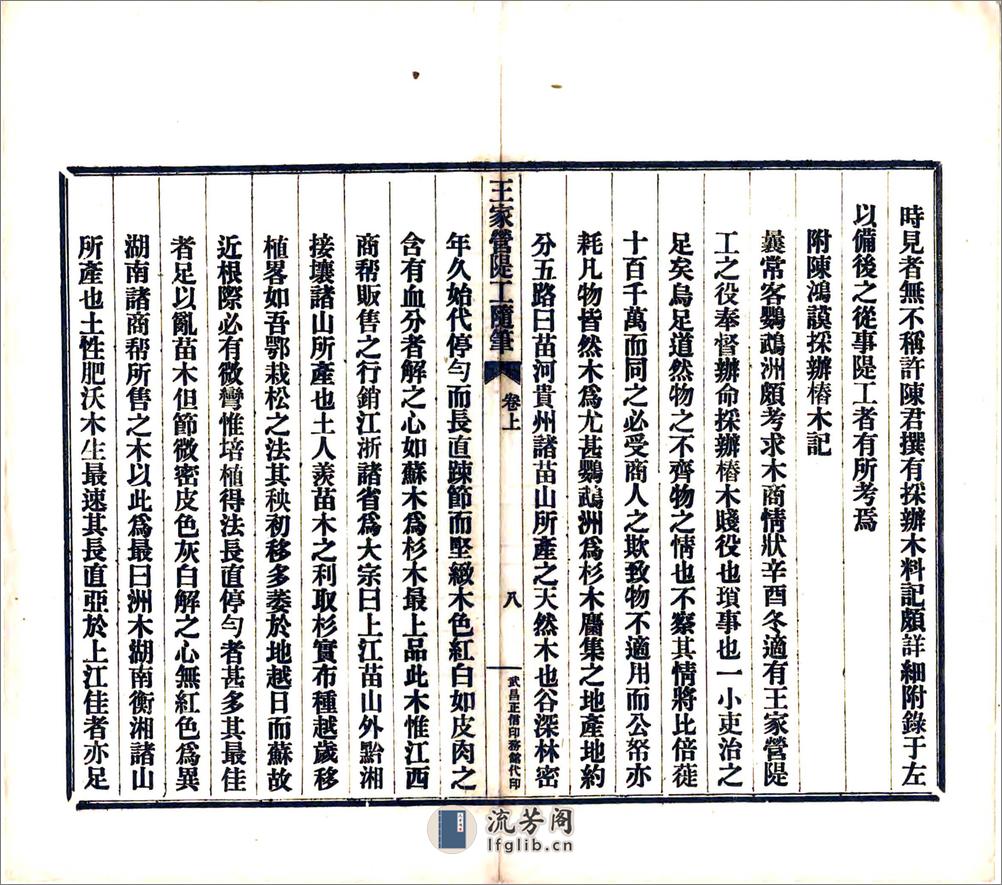 時見者無不稱許陳君撰有採辦木料記頗詳細附錄于左
以備後之從事隄工者有所考焉
附陳鴻謨採辦樁木記
曩常客鸚鵡洲頗考求木商情狀辛酉冬適有王家營隄
工之役奉督辦命採辦樁木賤役也瑣事也一小吏治之
足矣烏足道然物之不齊物之情也不察其情將比倍蓰
十百千萬而同之必受商人之欺致物不適用而公帑亦
耗凡物皆然木爲尤甚鸚鵡洲爲杉木麕集之地產地約
分五路曰苗河貴州諸苗山所產之天然木也谷深林密
王家營隄工隨筆
卷上
八
武昌正信印務館代印
年久始代停勻而長直疎節而堅緻木色紅白如皮肉之
含有血分者解之心如蘇木爲杉木最上品此木惟江西
商帮販售之行銷江浙諸省爲大宗曰上江苗山外黔湘
接壤諸山所產也土人羨苗木之利取杉實布種越歲移
植畧如吾鄂栽松之法其秧初移多萎於地越日而蘇故
近根際必有微彎惟培植得法長直停勻者甚多其最佳
者足以亂苗木但節微密皮色灰白解之心無紅色爲異
湖南諸商帮所售之木以此爲最曰洲木湖南衡湘諸山
所產也土性肥沃木生最速其長直亞於上江佳者亦足
流芳阁
lfglib.cn